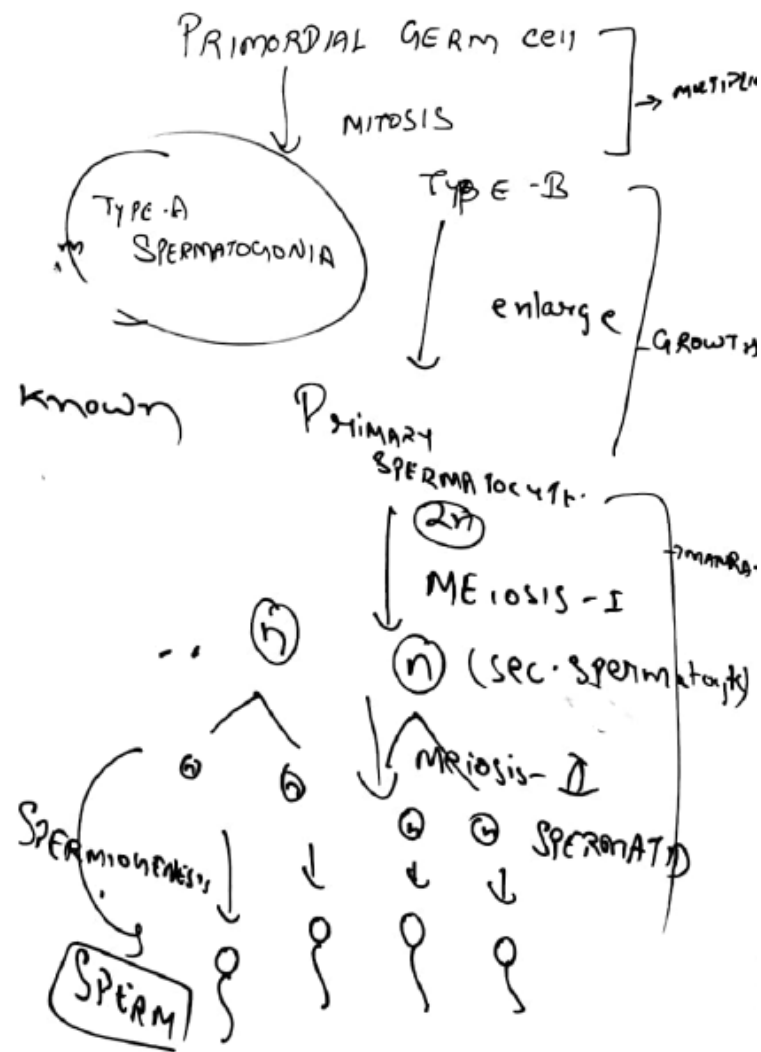 PRIMORDIAL GERM cell
MITOSIS
TYPE-A
SPERMATOGONIA
TYPE-B
enlarge
GROWTH
known
PRIMARY
SPERMATOCYTE
2n
MEIOSIS-I
n
n (sec. spermatocyte)
MEIOSIS-II
n n
n n SPERMATID
SPERMIOGENESIS
SPERM